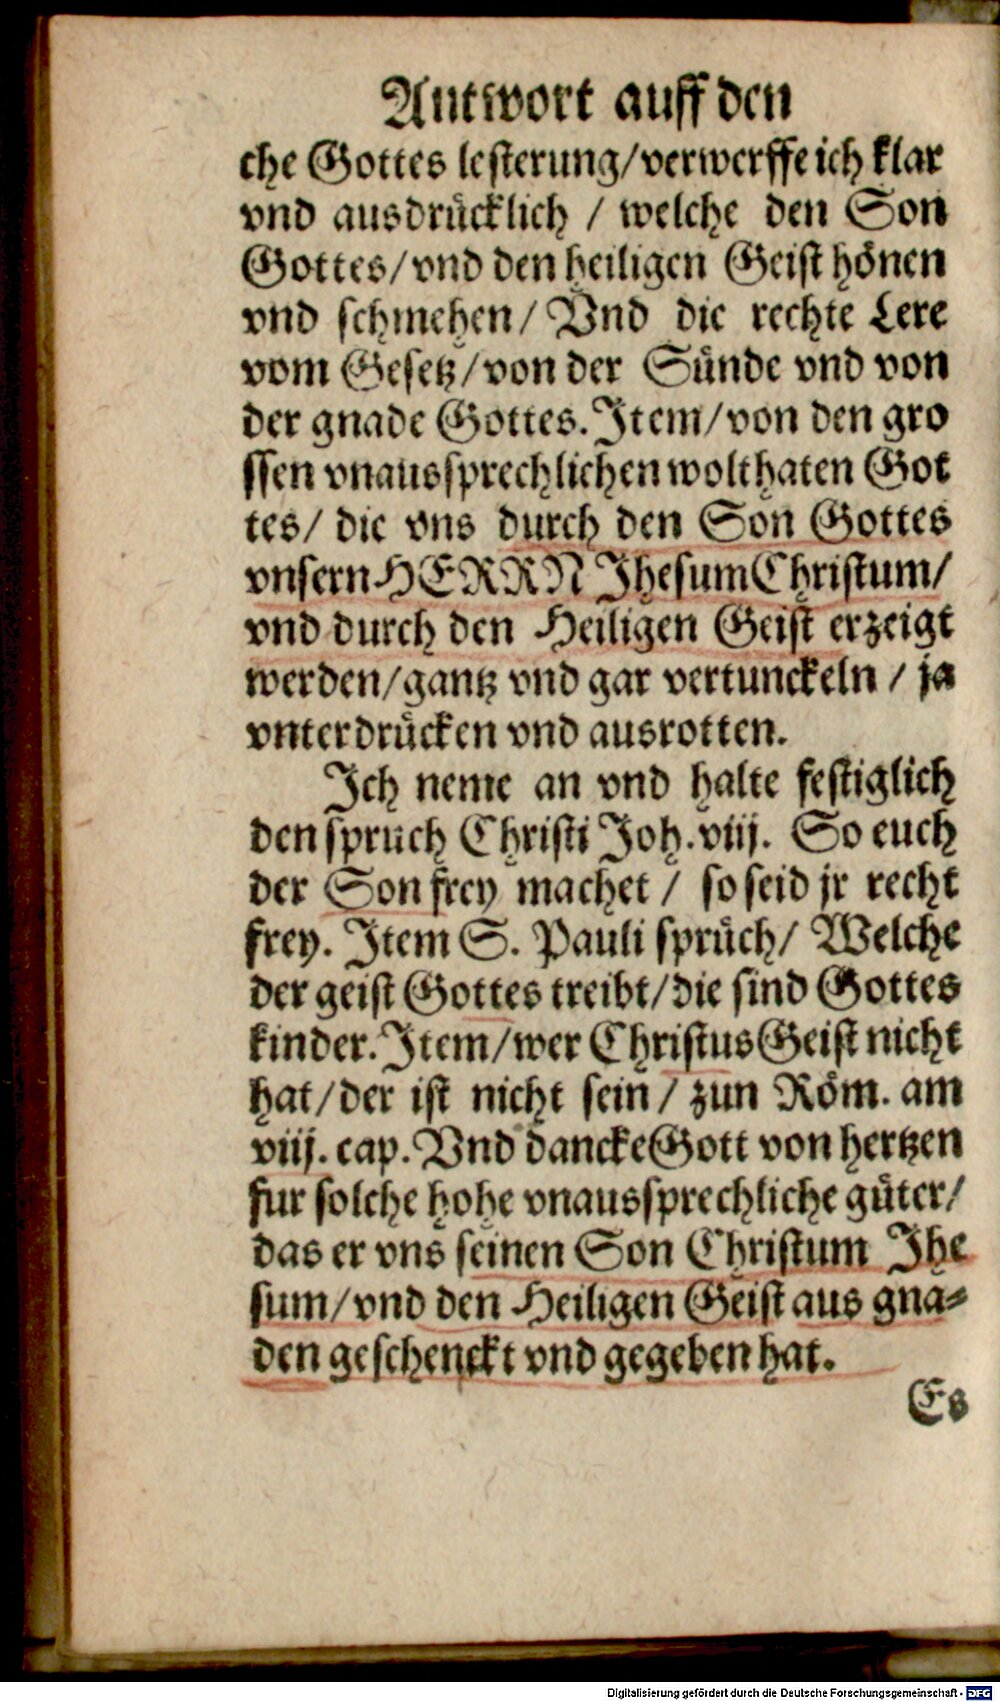 Antwort auff den
che Gottes lesterung/verwerffe ich klar
vnd ausdrücklich / welche den Son
Gottes/vnd den heiligen Geist hönen
vnd schmehen/ Vnd die rechte Lere
vom Gesetz/von der Sünde vnd von
der gnade Gottes. Item/von den gro
ssen vnaussprechlichen wolthaten Got
tes/ die vns durch den Son Gottes
vnsern HERRN Jhesum Christum/
vnd durch den Heiligen Geist erzeigt
werden/gantz vnd gar vertunckeln / ja
vnterdrücken vnd ausrotten.
Ich neme an vnd halte festiglich
den spruch Christi Joh. viij. So euch
der Son frey machet / so seid jr recht
frey. Item S. Pauli sprüch/ Welche
der geist Gottes treibt/die sind Gottes
kinder. Item/wer Christus Geist nicht
hat/der ist nicht sein/ zun Röm. am
viij. cap. Vnd dancke Gott von hertzen
fur solche hohe vnaussprechliche güter/
das er vns seinen Son Christum Jhe
sum/vnd den Heiligen Geist aus gna-
den geschenckt vnd gegeben hat.
Es
Digitalisierung gefördert durch die Deutsche Forschungsgemeinschaft - DFG